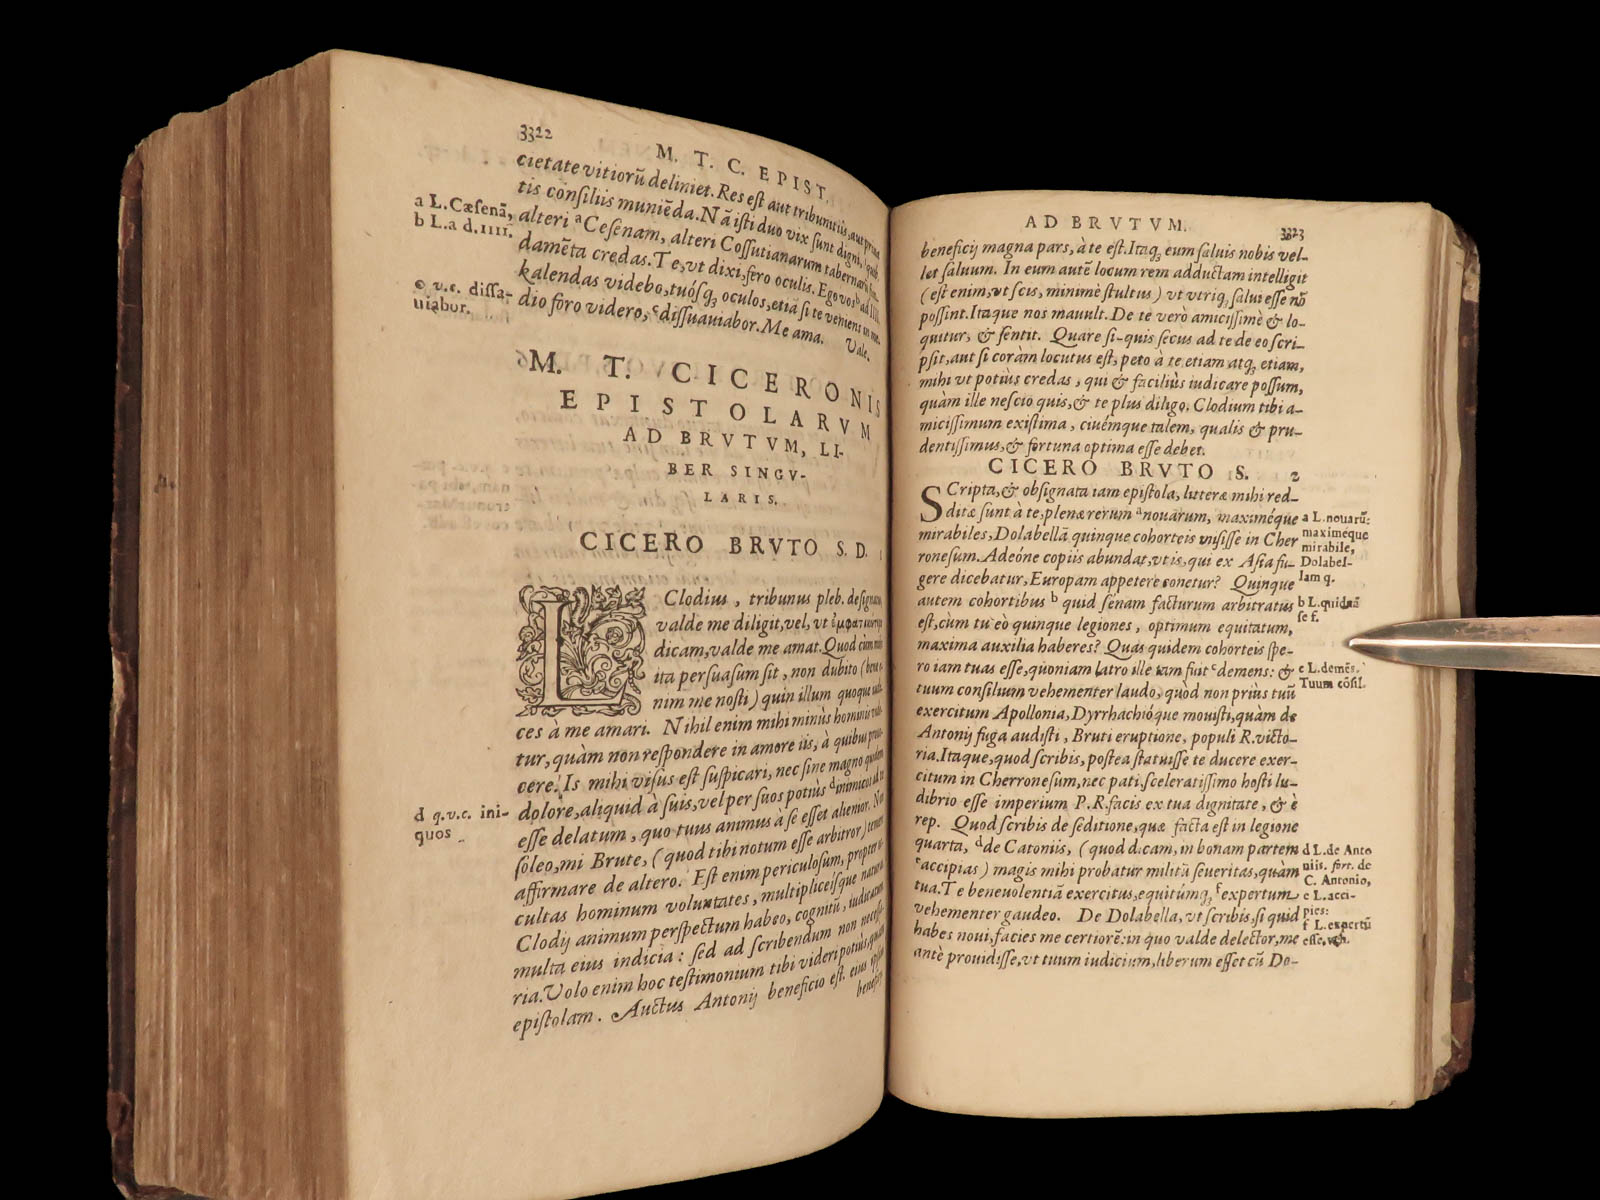 3322
M. T. C. EPIST.
cietate vitiorũ deliniet. Res est aut tribunitiis, aut
tis consiliis muniẽda. Nã isti duo vix sunt digni,
alteri ᵃ Cesenam, alteri Cossutianarum tabernarũ
damẽta credas. Te, vt dixi, fero oculis. Ego vos ᵇ ad IIII.
kalendas videbo, tuósq; oculos, etiã si te veniens in me-
dio foro videro, ᶜ dissuauiabor. Me ama. Vale.
a L. Cæsenã,
b L. a d. IIII.
c v.c. dissa-
uiabor.
M. T. CICERONIS
EPISTOLARVM
AD BRVTVM, LI-
BER SINGV-
LARIS.
CICERO BRVTO S. D. 1
L Clodius, tribunus pleb. designatus,
valde me diligit, vel, vt
dicam, valde me amat. Quod cùm mihi
ita persuasum sit, non dubito (bene e-
nim me nosti) quin illum quoque iudi-
ces à me amari. Nihil enim mihi minùs hominis vide-
tur, quàm non respondere in amore iis, à quibus prouo-
cere. Is mihi visus est suspicari, nec sine magno quidem
dolore, aliquid à suis, vel per suos potiùs ᵈ inimicos ad te
esse delatum, quo tuus animus à se esset alienior. Non
soleo, mi Brute, (quod tibi notum esse arbitror) temere
affirmare de altero. Est enim periculosum, propter oc-
cultas hominum voluntates, multipliceísque naturas.
Clodij animum perspectum habeo, cognitũ, iudicatum.
multa eius indicia: sed ad scribendum non necessa-
ria. Volo enim hoc testimonium tibi videri potiùs, quàm
epistolam. Auctus Antonij beneficio est. eius ipsius
beneficij
d q.v.c. ini-
quos
AD BRVTVM. 3323
beneficij magna pars, à te est. Itaq; eum saluis nobis vel-
let saluum. In eum autẽ locum rem adductam intelligit
(est enim, vt scis, minimè stultus) vt vtriq; salui esse nõ
possint. Itaque nos mauult. De te verò amicissimè & lo-
quitur, & sentit. Quare si-quis secus ad te de eo scri-
psit, aut si coràm locutus est, peto à te etiam atq; etiam,
mihi vt potiùs credas, qui & faciliùs iudicare possum,
quàm ille nescio quis, & te plus diligo. Clodium tibi a-
micissimum existima, ciuémque talem, qualis & pru-
dentissimus, & fortuna optima esse debet.
CICERO BRVTO S. 2
SCripta, & obsignata iam epistola, litteræ mihi red-
ditæ sunt à te, plenæ rerum ᵃ nouarum, maximéque
mirabiles, Dolabellã quinque cohorteis misisse in Cher
ronesum. Adeóne copiis abundat, vt is, qui ex Asia fu-
gere dicebatur, Europam appetere conetur? Quinque
autem cohortibus ᵇ quid senam facturum arbitratus
est, cum tu eò quinque legiones, optimum equitatum,
maxima auxilia haberes? Quas quidem cohorteis spe-
ro iam tuas esse, quoniam latro ille tam fuit ᶜ demens: &
tuum consilium vehementer laudo, quòd non priùs tuũ
exercitum Apollonia, Dyrrhachióque mouisti, quàm de
Antonij fuga audisti, Bruti eruptione, populi R. victo-
ria. Itaque, quod scribis, postea statuisse te ducere exer-
citum in Cherronesum, nec pati sceleratissimo hosti lu-
dibrio esse imperium P.R. facis ex tua dignitate, & è
rep. Quod scribis de seditione, quæ facta est in legione
quarta, ᵈ de Catoniis, (quod dicam, in bonam partem
ᵉ accipias) magis mihi probatur militũ seueritas, quàm
tua. Te beneuolentiã exercitus, equitúmq; ᶠ expertum
vehementer gaudeo. De Dolabella, vt scribis, si quid
habes noui, facies me certiorẽ: in quo valde delector, me
antè prouidisse, vt tuum iudicium, liberum esset cũ Do-
a L. nouarũ:
maximéque
mirabile,
Dolabel-
lam q.
b L. quidnã
se f.
c L. demẽs.
Tuum cõsil.
d L. de Anto
niis. fort. de
C. Antonio,
e L. acci-
pies:
f L. expertũ
esse, veh.